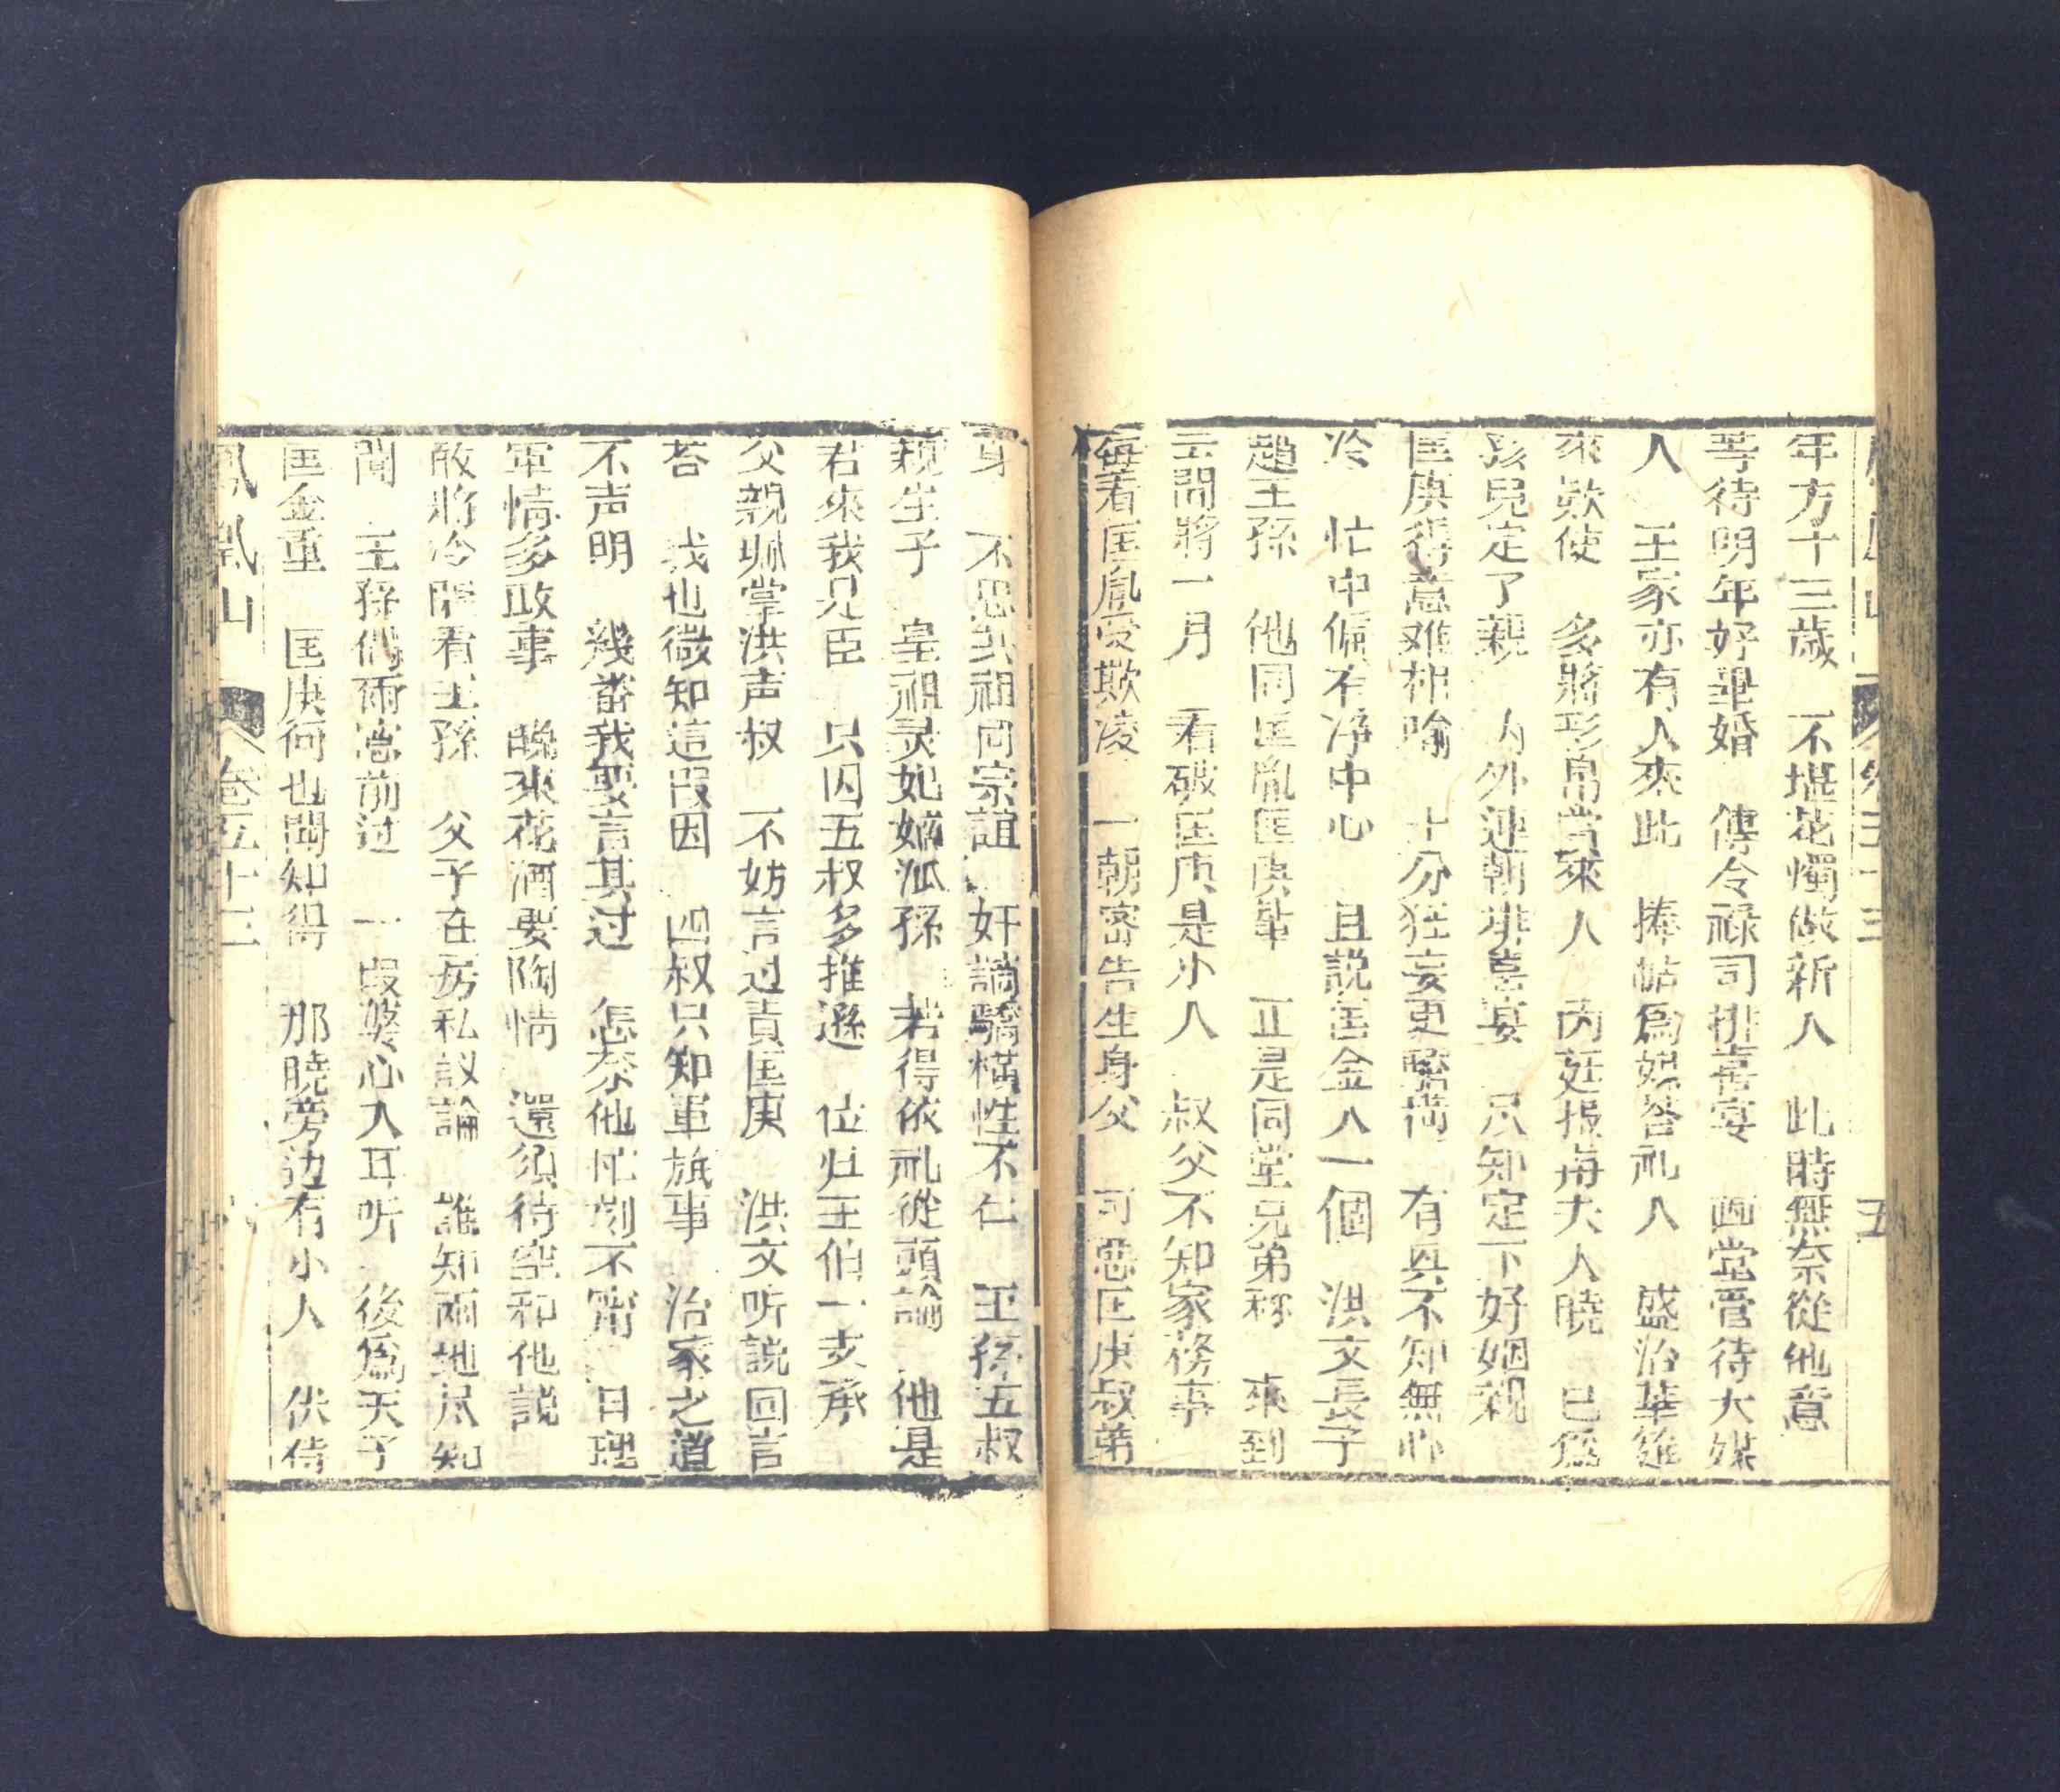 年方十三歲　不堪花燭做新人　此時無奈從他意
等待明年好畢婚　傳令祿司排喜宴　画堂管待大媒
人　王家亦有人來此　捧帖爲媒答礼人　盛治華筵
來欵使　多將彩帛賞來人　丙廷报母夫人曉　已爲
孩兒定了親　内外連朝排喜宴　只知定下好姻親
匡庚得意难相喻　十分狂妄更驕横　有兴不知無心
冷　忙中偏有凈中心　且説匡金人一個　洪文長子
趙王孫　他同匡胤匡庚輩　正是同堂兄弟称　來到
云間將一月　看破匡庚是小人　叔父不知家務事
每看匡胤受欺凌　一朝密告生身父　可惡匡庚叔弟
身　不思共祖同宗誼　奸謫驕横性不仁　王孫五叔
親生子　皇祖灵妃嫡派孫　若得依礼從頭論　他是
君來我是臣　只因五叔多推遜　位归王伯一支承
父親聊掌洪声叔　不妨言过責匡庚　洪文听説回言
荅　我也微知這叚因　四叔只知軍旅事　治家之道
不声明　幾畨我要言其过　怎奈他忙刻不寧　日理
軍情多政事　晚來花酒要陶情　還須待空和他説
敢將冷眼看王孫　父子在房私議論　誰知兩地尽知
聞　王孫偶爾窓前过　一叚婆心入耳听　後爲天子
匡金重　匡庚何也聞知得　那曉旁边有小人　伏侍
鳳凰山　卷五十三